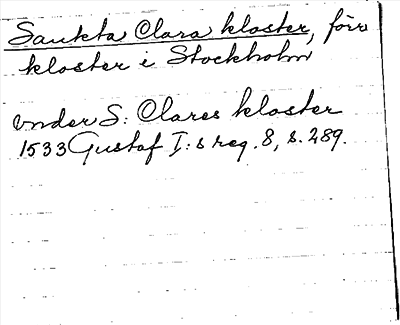 Sankta Clara kloster, förr
kloster i Stockholm
under S: Clares kloster
1533 Gustaf I:s reg. 8, s. 289.